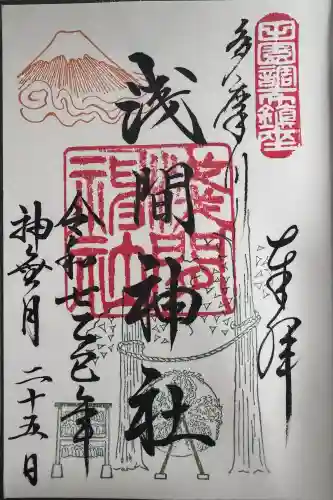 奉拝
田園調布鎮座
多摩川
浅間神社
浅間神社
令和七乙巳年
神無月 二十五日